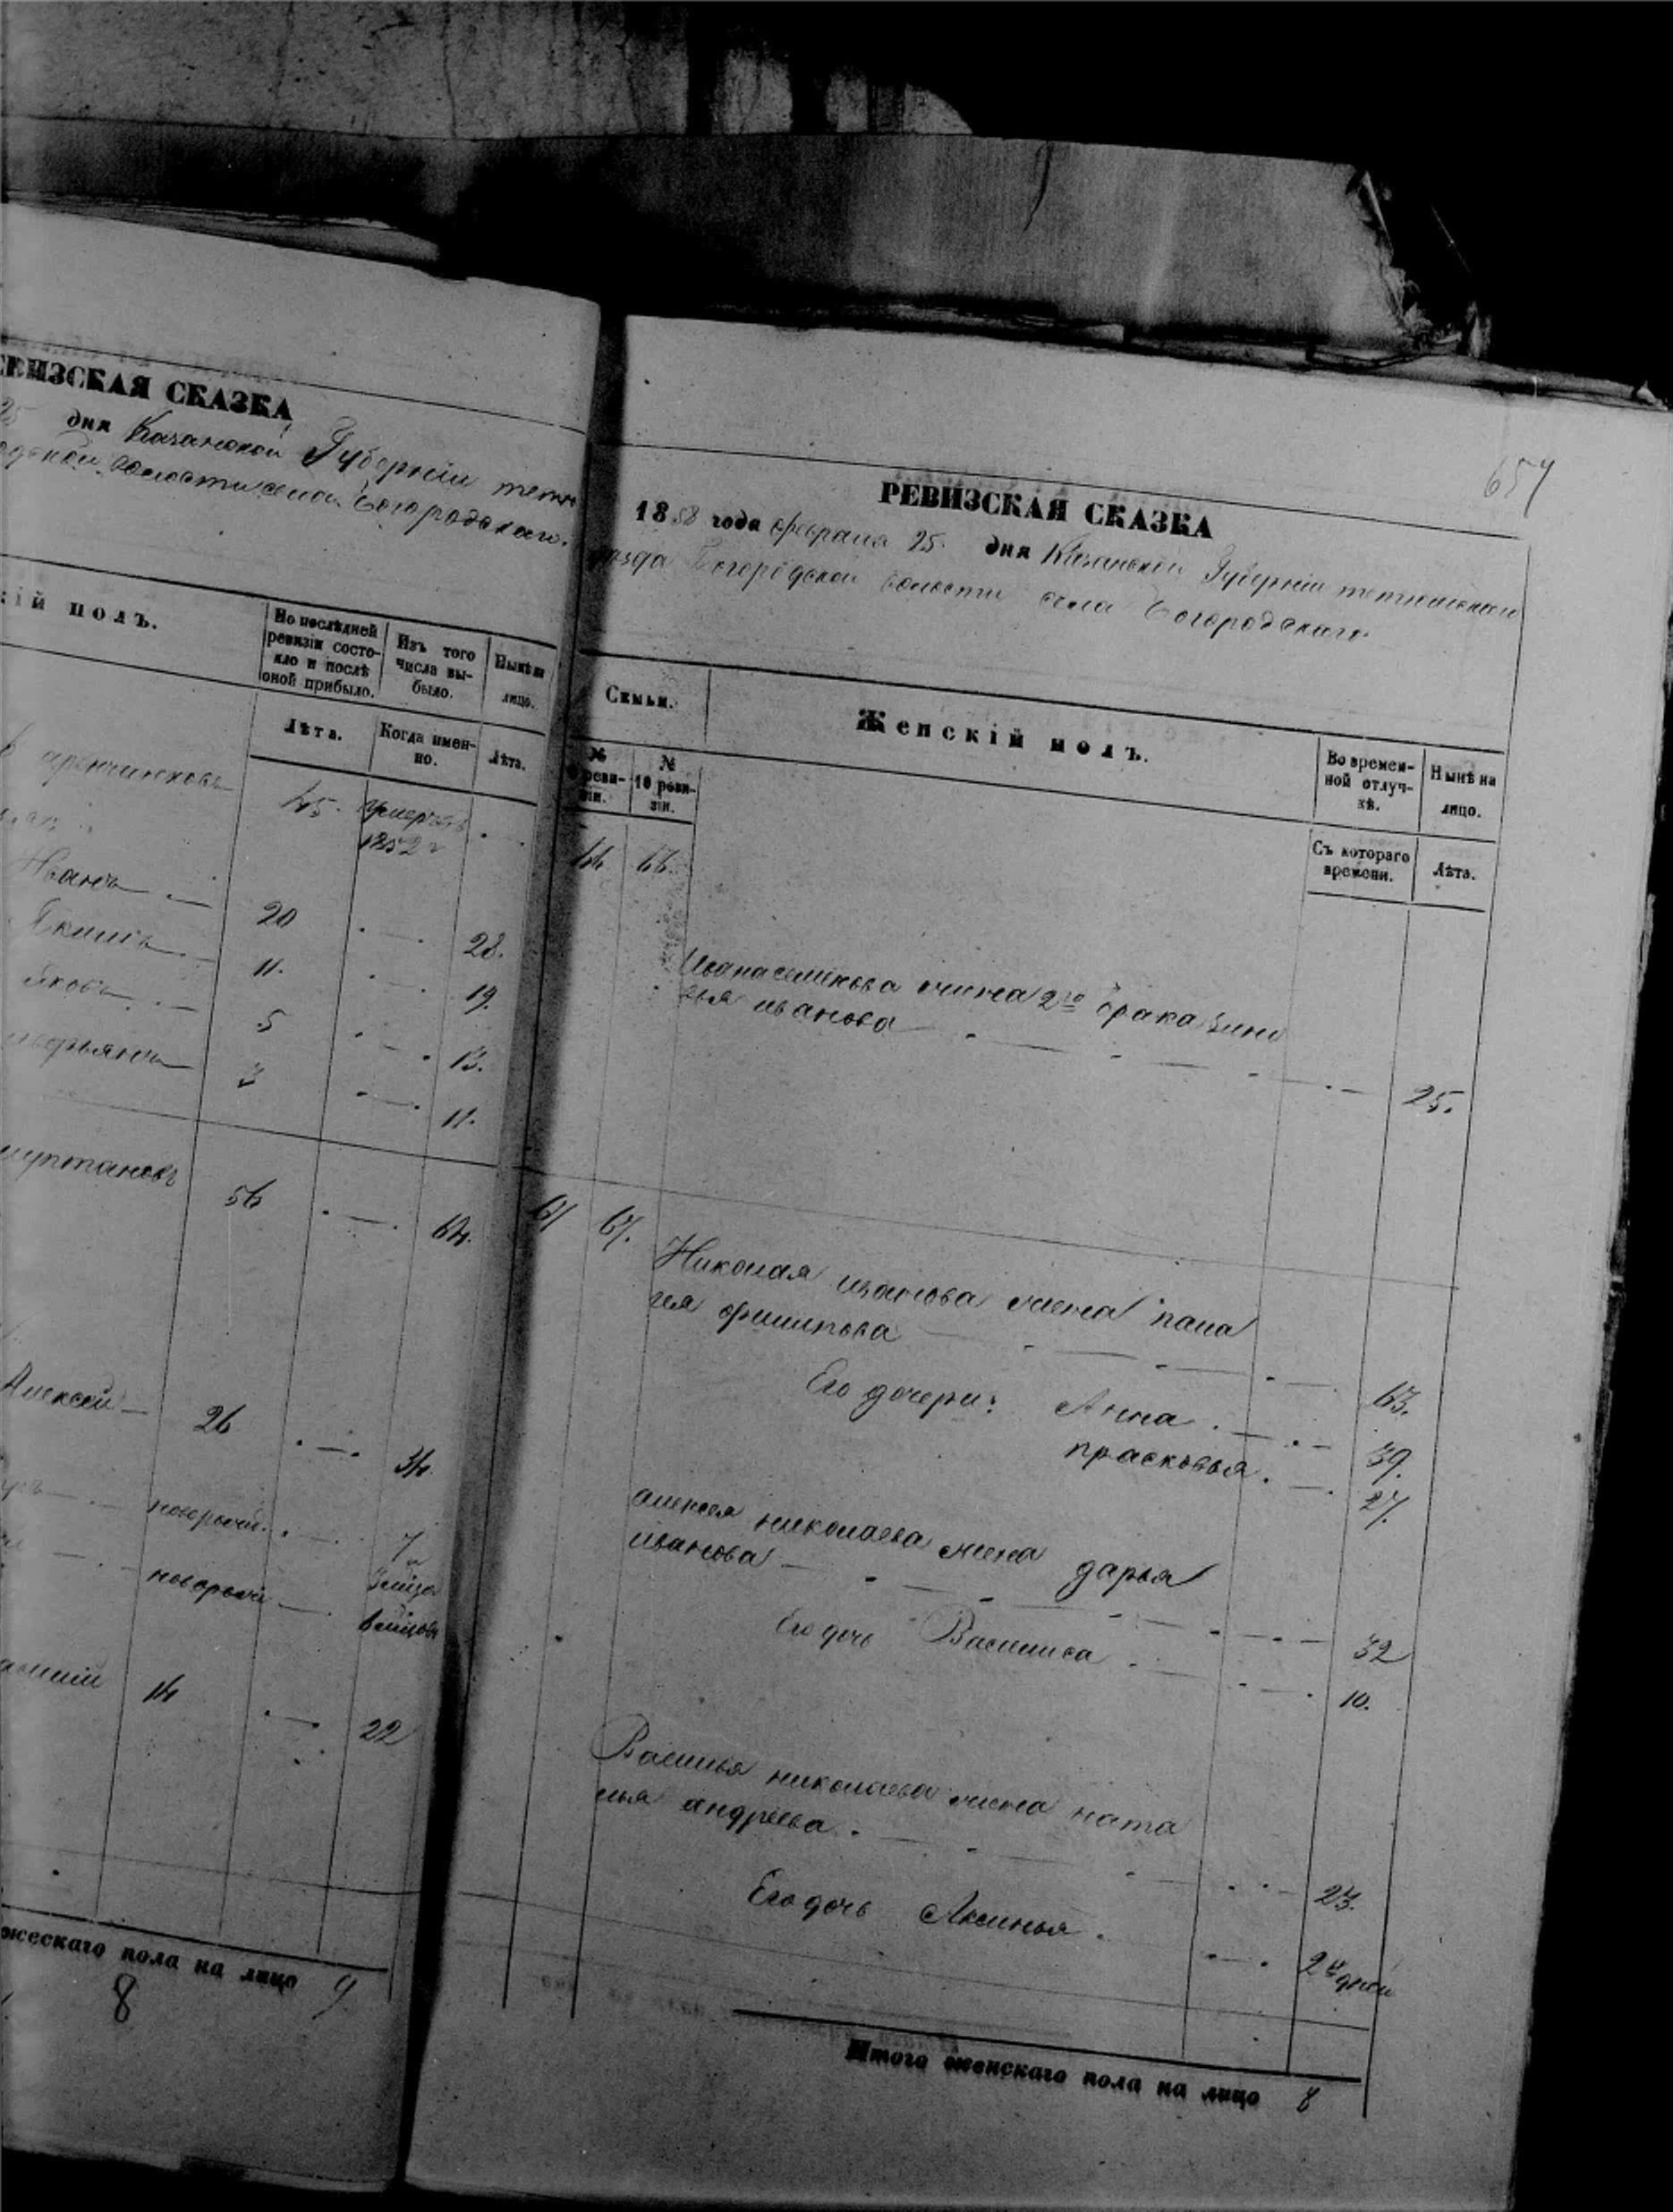 РЕВИЗСКАЯ СКАЗКА
25 дня Казанской Губерніи тетю
волости села Богородскаго.
кій полъ.
По послѣдней ревизіи состояло и послѣ оной прибыло.
Изъ того числа выбыло.
Нынѣ на лицо.
Лѣта.
Когда именно.
Лѣта.
45. умеръ в 1852 г
Иванъ 20 28.
Якимъ 11. 19.
Яковъ 5 13.
3 11.
56 64.
Алексей 26 34
новорожд. 7
новорожд
14 22
жескаго пола на лицо 9
8
654
РЕВИЗСКАЯ СКАЗКА
1858 года февраля 25 дня Казанской Губерніи тетюшскаго
уѣзда Богородской волости села Богородскаго
Семьи.
Женскій полъ.
Во временной отлучкѣ.
Нынѣ на лицо.
№ ревизіи.
№ 10 ревизіи.
Съ котораго времени.
Лѣта.
66 66.
Ивана семенова жена 2го брака Зино
вья иванова 25.
67 67.
Николая иванова жена пела
гея филипова 63.
Его дочери: Анна 39.
прасковья 27.
алексея николаева жена дарья
иванова 32
Его дочь Василиса 10.
Василья николаева жена ната
лья андреева 23.
Его дочь Аксинья 24 дней
Итого женскаго пола на лицо 8